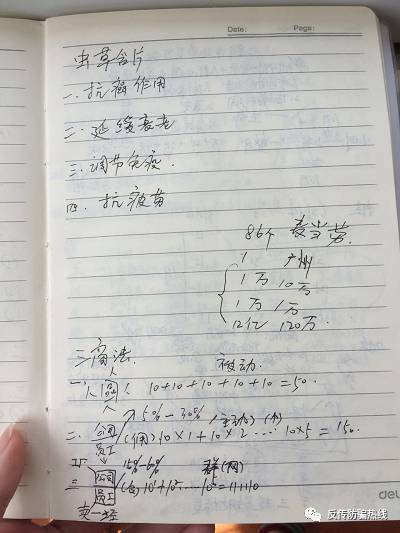 Date: Page:
虫草含片
一、抗癌作用
二、延缓衰老
三、调节免疫.
四、抗疲劳
86个 麦当劳.
1 广州
1万 10万
1万 1万
12亿 120万.
三富法. 被动.
一、人 人 10+10+10+10+10=50.
15%-30% 主动
二、公司 10×1+10×2……10×5=150.
员工
三 15%-60% 群(网)
公司
员工
反传防骗热线